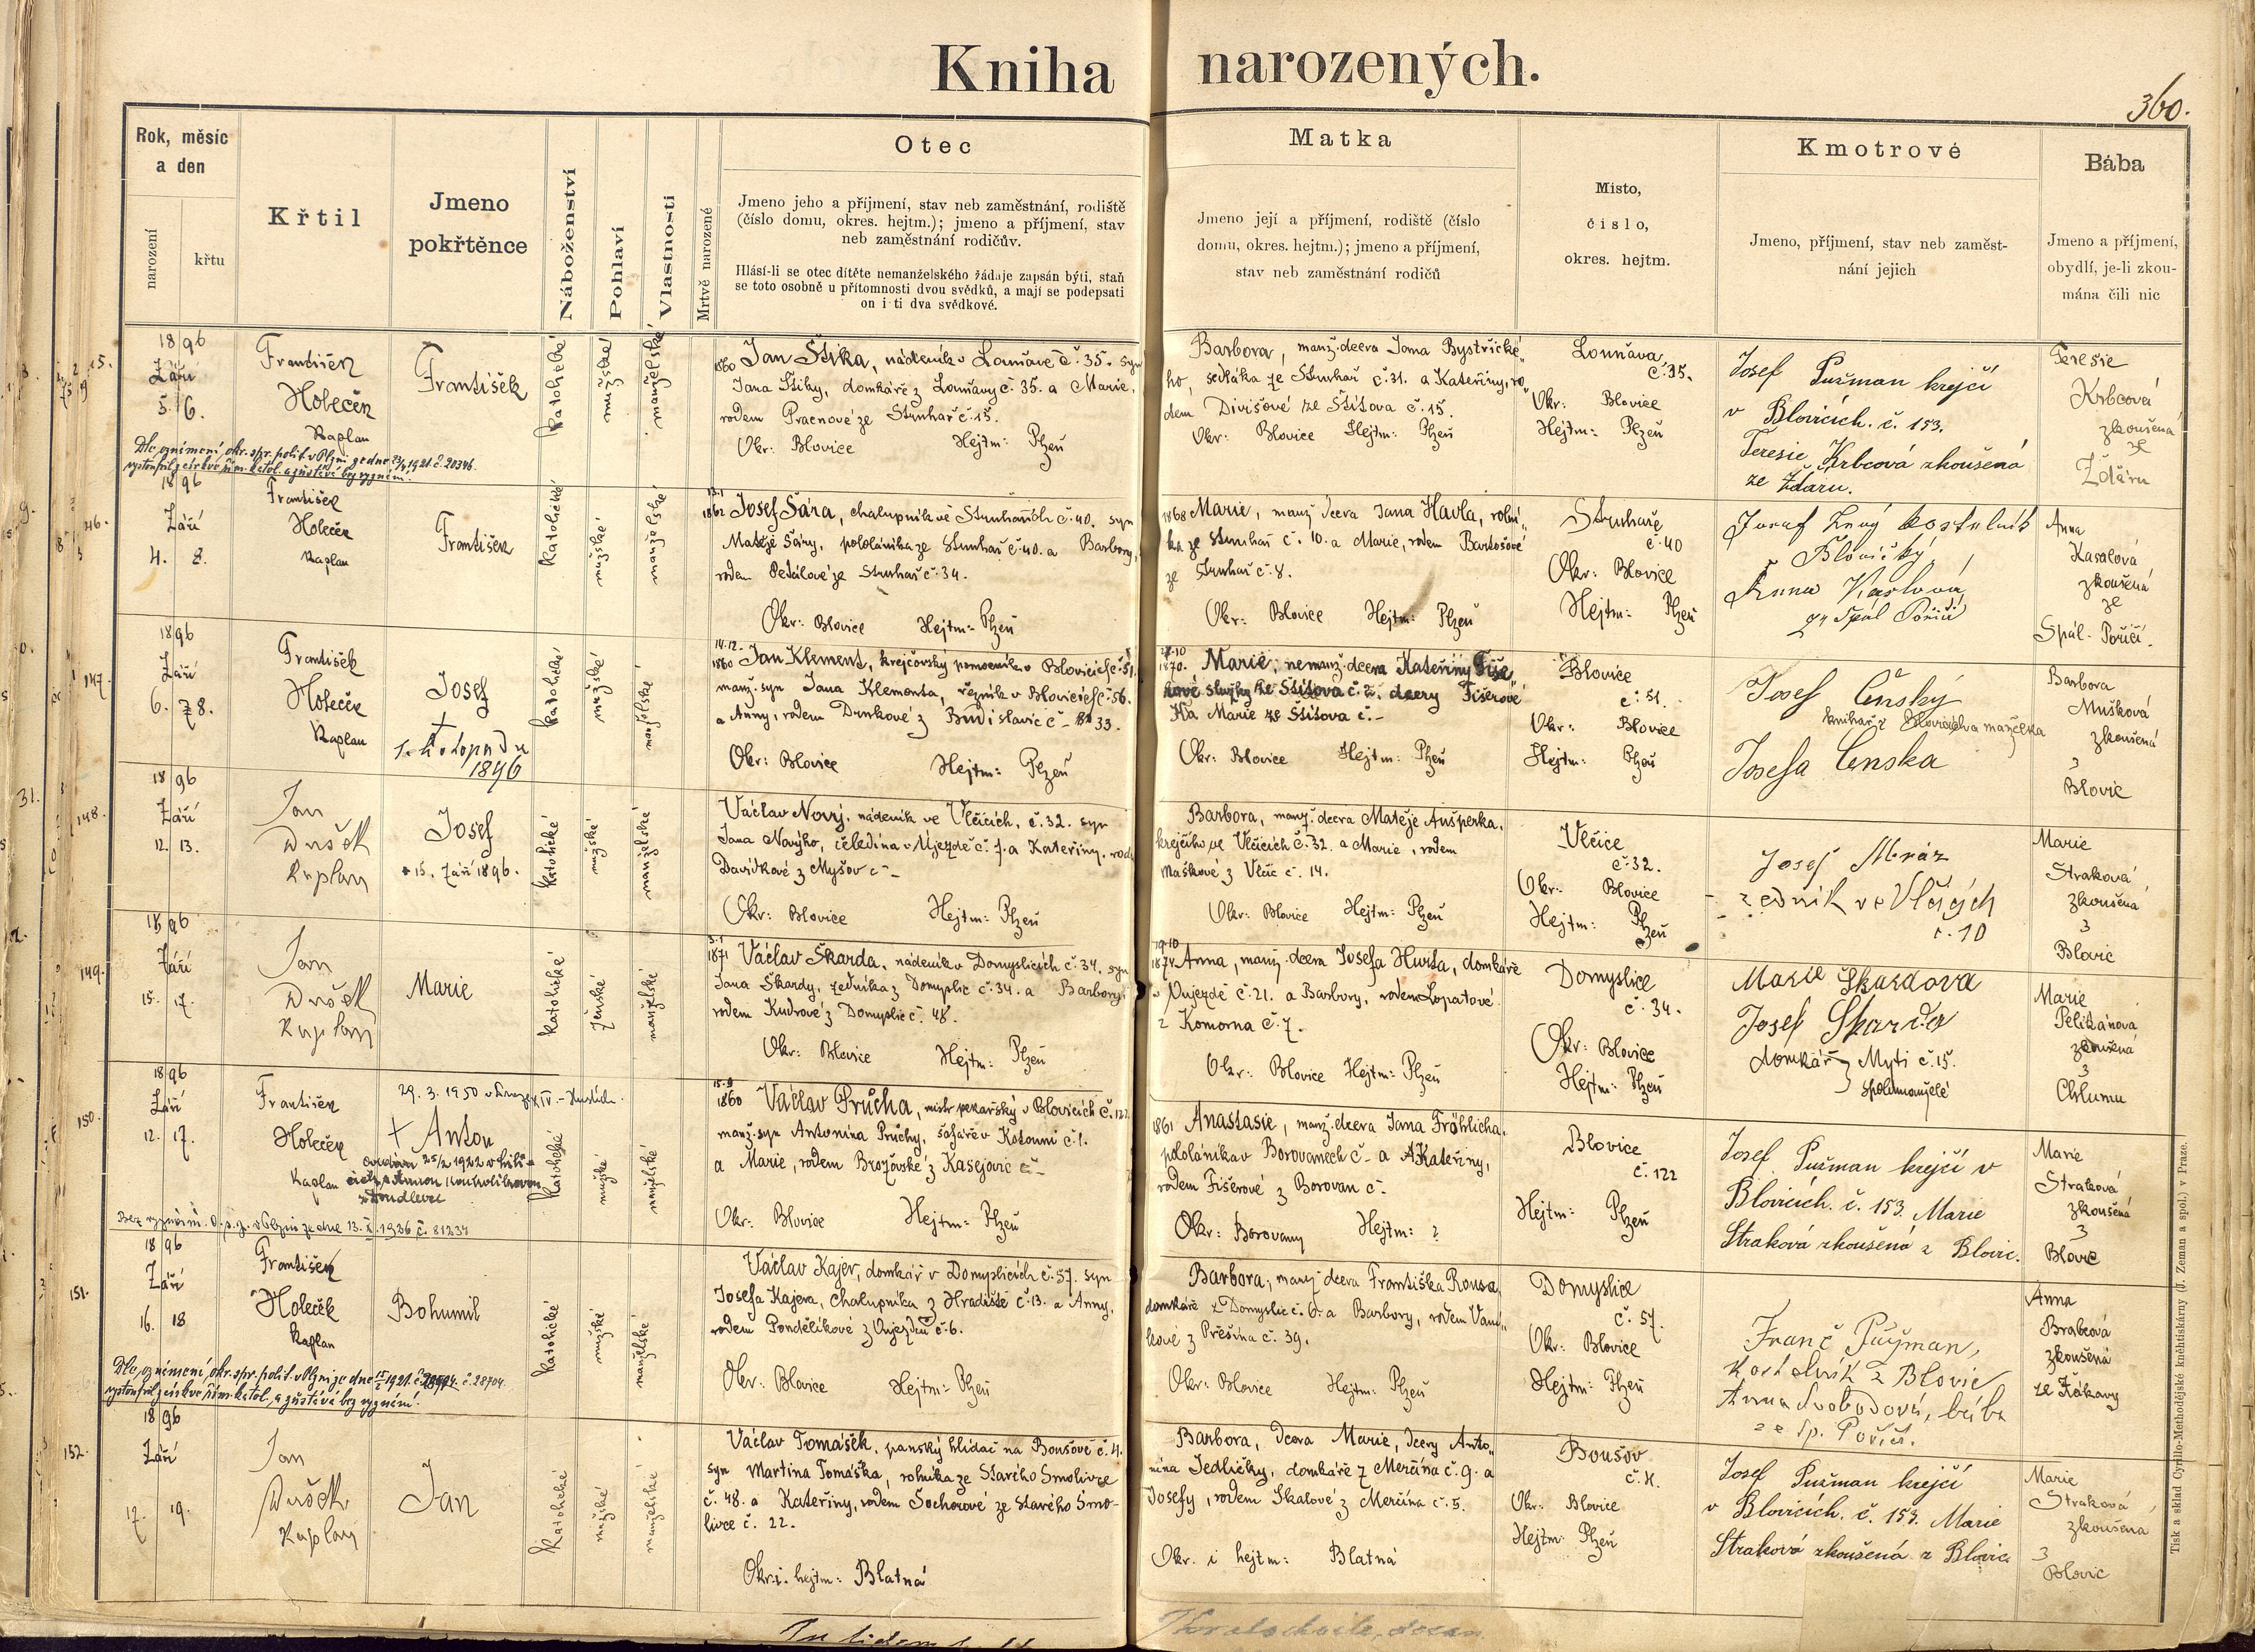 Kniha narozených.
360.
Rok, měsíc
a den
narození
křtu
Křtil
Jmeno
pokřtěnce
Náboženství
Pohlaví
Vlastnosti
Mrtvě narozené
Otec
Jmeno jeho a příjmení, stav neb zaměstnání, rodiště
(číslo domu, okres. hejtm.); jmeno a příjmení, stav
neb zaměstnání rodičův.
Hlásí-li se otec dítěte nemanželského žádaje zapsán býti, staň
se toto osobně u přítomnosti dvou svědků, a mají se podepsati
on i ti dva svědkové.
Matka
Jmeno její a příjmení, rodiště (číslo
domu, okres. hejtm.); jmeno a příjmení,
stav neb zaměstnání rodičů
Misto,
číslo,
okres. hejtm.
Kmotrové
Jmeno, příjmení, stav neb zaměst-
nání jejich
Bába
Jmeno a příjmení,
obydlí, je-li zkou-
mána čili nic
1896
Září
5. 6.
František
Holeček
Kaplan
František
katolické
mužské
manželské
1860 Jan Štika, nádeník v Louňavě č. 35. syn
Jana Štiky, domkáře z Louňavy č. 35. a Marie,
rodem Pracnové ze Struhař č. 15.
Okr: Blovice Hejtm: Plzeň
Barbora, manž. dcera Jana Bystřické„
ho, sedláka ze Struhař č. 31. a Kateřiny, ro„
dem Divišové ze Štítova č. 15.
Okr: Blovice Hejtm: Plzeň
Louňava
č. 35.
Okr: Blovice
Hejtm: Plzeň
Josef Pužman krejčí
v Blovicích. č. 153.
Teresie Krbcová zkoušená
ze Ždáru.
Teresie
Krbcová
zkoušená
ze
Ždáru
Dle oznámení okr. spr. polit. v Plzni ze dne 23/4 1921. č. 20346.
vystoupil z církve řím. katol. a zůstává bez vyznání.
146.
1896
Září
4. 8.
František
Holeček
Kaplan
František
katolické
mužské
manželské
1862 Josef Šára, chalupník ve Struhařích č. 40. syn
Matěje Šáry, pololáníka ze Struhař č. 40. a Barbory,
rodem Pedálové ze Struhař č. 34.
Okr: Blovice Hejtm: Plzeň
1868 Marie, manž. dcera Jana Havla, rolní„
ka ze Struhař č. 10. a Marie, rodem Bartošové
ze Struhař č. 8.
Okr: Blovice Hejtm: Plzeň
Struhaře
č. 40
Okr: Blovice
Hejtm: Plzeň
kostelník
Blovický
Anna
ze Spál Poříčí
Anna
Kasalová
zkoušená
ze
Spál. Poříčí.
147.
1896
Září
6. 8.
František
Holeček
Kaplan
Josef
†
1. listopadu
1896
katolické
mužské
manželské
14.12.
1860 Jan Klement, krejčovský pomocník v Blovicích č. 51.
manž. syn Jana Klementa, řezník v Blovicích č. 56.
a Anny, rodem Drnkové z Budislavic č. 33.
Okr: Blovice Hejtm: Plzeň
1870. Marie, nemanž. dcera Kateřiny Fiše„
rové služky ze Štítova č. 2. dcery Fišerové
Marie ze Štítova č. –
Okr: Blovice Hejtm: Plzeň
Blovice
č. 51.
Okr: Blovice
Hejtm: Plzeň
Josef Čenský
knihař z Blovic manželka
Josefa Čenska
Barbora
Mušková
zkoušená
z
Blovic
148.
1896
Září
12. 13.
Jan
Dušek
Kaplan
Josef
† 15. Září 1896.
katolické
mužské
manželské
Václav Nový, nádeník ve Vlčicích, č. 32. syn
Jana Nového, čeledína v Újezdě č. 7. a Kateřiny, rod.
Davídkové z Myšov č –
Okr: Blovice Hejtm: Plzeň
Barbora, manž. dcera Matěje Aušperka,
krejčího ve Vlčicích č. 32. a Marie, rodem
Maškové z Vlčic č. 14.
Okr: Blovice Hejtm: Plzeň
Vlčice
č. 32.
Okr: Blovice
Hejtm: Plzeň
Josef Mráz
zedník ve Vlčicích
č. 10
Marie
Straková
zkoušená
z
Blovic
149.
1896
Září
15. 17.
Jan
Dušek
Kaplan
Marie
katolické
ženské
manželské
1871 Václav Škarda, nádeník v Domyslicích č. 34. syn
Jana Škardy, zedníka z Domyslic č. 34. a Barbory,
rodem Kudrové z Domyslic č. 48.
Okr: Blovice Hejtm: Plzeň
1874 Anna, manž. dcera Josefa Hursa, domkáře
v Oujezdě č. 21. a Barbory, rodem Lopatové
z Komorna č. 7.
Okr: Blovice Hejtm: Plzeň
Domyslice
č. 34.
Okr: Blovice
Hejtm: Plzeň
Marie Škardova
Josef Škarda
domkář z Myti č. 15.
spolumanželé
Marie
Pelikánová
zkoušená
z
Chlumu
150.
1896
Září
12. 17.
František
Holeček
Kaplan
29. 3. 1950
† Anton
katolické
mužské
manželské
15.9
1860 Václav Průcha, mistr pekařský v Blovicích č. 122
manž. syn Antonína Průchy, šafáře v Kotouni č. 1.
a Marie, rodem Brožovské z Kasejovic č –
Okr: Blovice Hejtm: Plzeň
1861 Anastasie, manž. dcera Jana Fröhlicha,
pololáníka v Borovanech č – a Kateřiny,
rodem Fišerové z Borovan č.
Okr: Borovany Hejtm: ?
Blovice
č. 122
Hejtm: Plzeň
Josef Pužman krejčí v
Blovicích. č. 153. Marie
Straková zkoušená z Blovic.
Marie
Straková
zkoušená
z
Blovic
Bez vyznání. O. p. z. v Plzni ze dne 13. X. 1936 č. 81237
151.
1896
Září
16. 18
František
Holeček
Kaplan
Bohumil
katolické
mužské
manželské
Václav Kajer, domkář v Domyslicích č. 57. syn
Josefa Kajera, chalupníka z Hradiště č. 13. a Anny,
rodem Pondělíkové z Oujezdu č. 6.
Okr: Blovice Hejtm: Plzeň
Barbora, manž. dcera Františka Rousa,
domkáře z Domyslic č. 6. a Barbory, rodem Vaní„
kové z Přešína č. 39.
Okr: Blovice Hejtm: Plzeň
Domyslice
č. 57.
Okr: Blovice
Hejtm: Plzeň
Franč Pužman,
kostelník z Blovic
Anna Svobodová, bába
ze Sp. Poříčí.
Anna
Brabcová
zkoušená
ze Žákavy
Dle oznámení okr. spr. polit. v Plzni ze dne 1921. č. 28704.
vystoupil z církve řím. katol. a zůstává bez vyznání.
152.
1896
Září
17. 19.
Jan
Dušek
Kaplan
Jan
katolické
mužské
manželské
Václav Tomášek, panský hlídač na Boušově č. 4.
syn Martina Tomáška, rolníka ze Starého Smolivce
č. 48. a Kateřiny, rodem Sochorové ze Starého Smo-
livce č. 22.
Okr. i. hejtm: Blatná
Barbora, dcera Marie, dcery Anto„
nína Jedličky, domkáře z Merčína č. 9. a
Josefy, rodem Skalové z Merčína č. 5.
Okr. i hejtm: Blatná
Boušov
č. 4.
Okr: Blovice
Hejtm: Plzeň
Josef Pužman krejčí
v Blovicích. č. 153. Marie
Straková zkoušená z Blovic
Marie
Straková
zkoušená
z
Blovic
Tisk a sklad Cyrillo-Methodějské knihtiskárny (J. Zeman a spol.) v Praze.